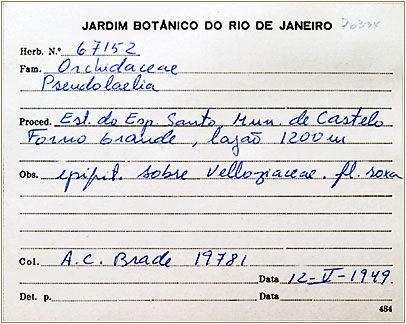 JARDIM BOTÂNICO DO RIO DE JANEIRO
Herb. N.º 67152
Fam. Orchidaceae
Pseudolaelia
Proced. Est. do Esp. Santo Mun. de Castelo
Forno Grande, lagão 1200m
Obs. epipit. sobre Velloziaceae. fl. roxa
Col. A.C. Brade 19781
Data 12-V-1949.
Det. p. Data
484